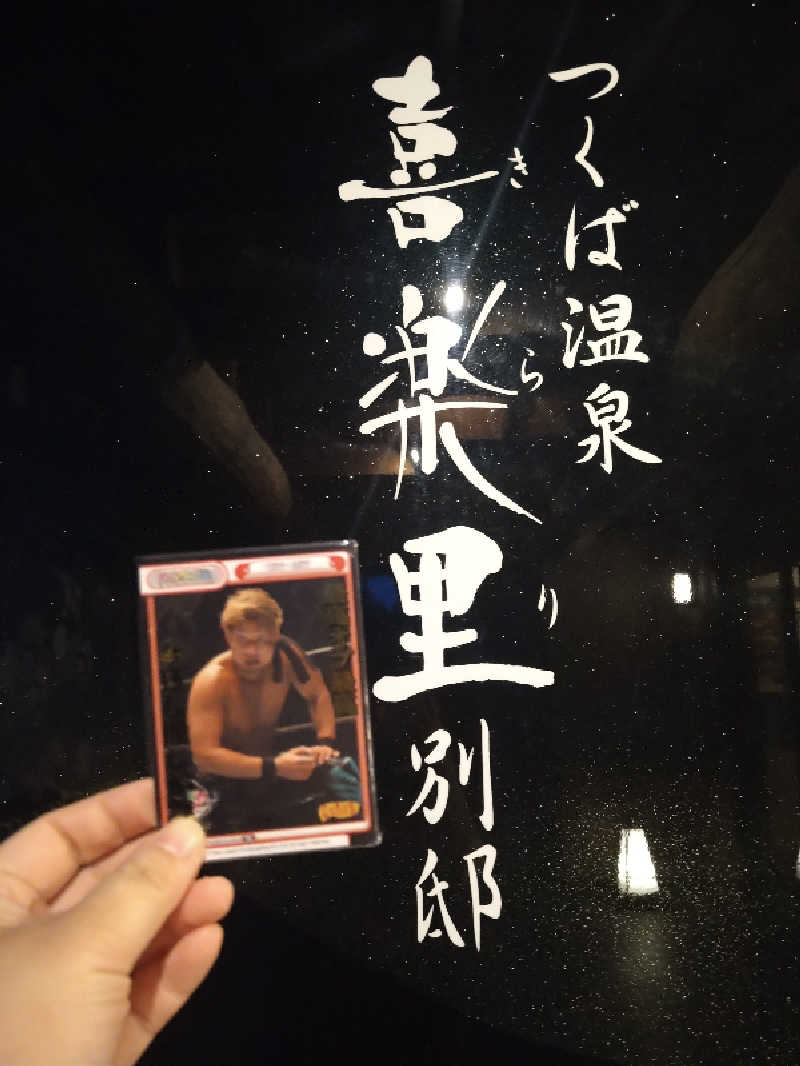 つくば温泉
喜楽里
きらり
別邸